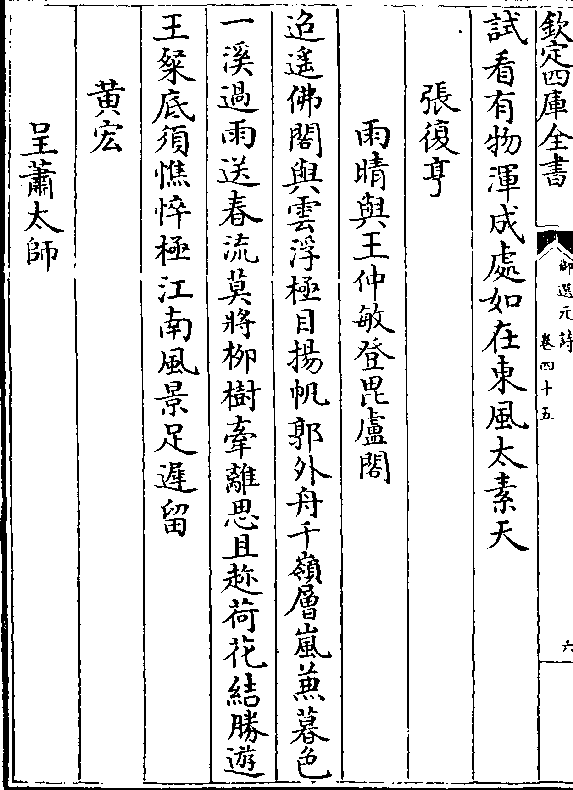 欽定四庫全書
御選元詩
卷四十五
六
試看有物渾成處如在東風太素天
張復亨
雨晴與王仲敏登毘盧閣
迢遥佛閣與雲浮極目揚帆郭外舟千嶺層嵐兼暮色
一溪過雨送春流莫將柳樹牽離思且趂荷花結勝遊
王粲底須憔悴極江南風景足遲留
黄宏
呈蕭太師